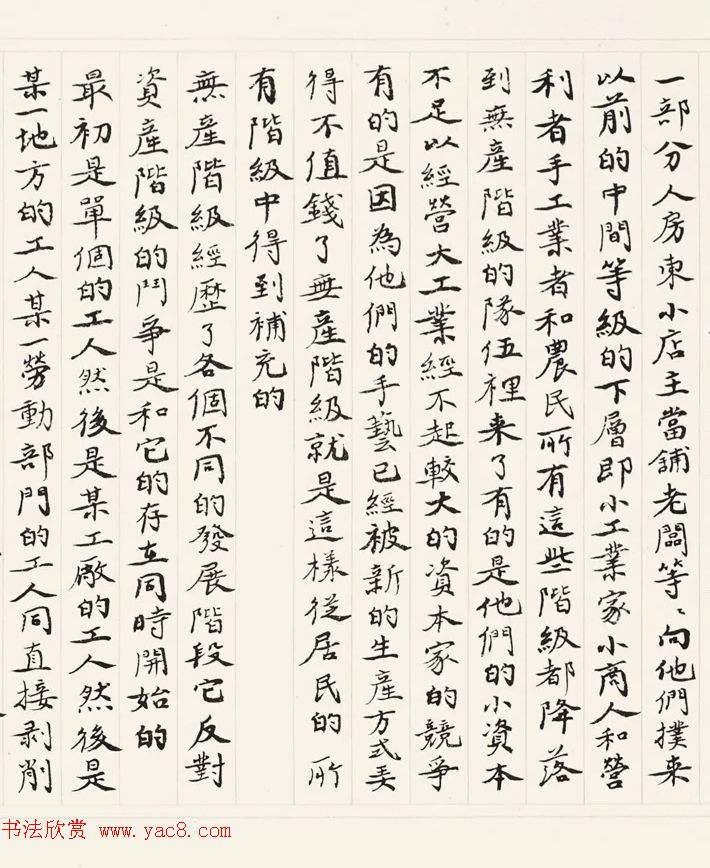 一部分人房東小店主當舖老闆等〻向他們撲来
以前的中間等級的下層即小工業家小商人和營
利者手工業者和農民所有這些階級都降落
到無產階級的隊伍裡来了有的是他們的小資本
不足以經營大工業經不起較大的資本家的競爭
有的是因為他們的手藝已經被新的生產方式弄
得不值錢了無產階級就是這樣從居民的所
有階級中得到補充的
無產階級經歷了各個不同的發展階段它反對
資產階級的鬥爭是和它的存在同時開始的
最初是單個的工人然後是某工廠的工人然後是
某一地方的工人某一勞動部門的工人同直接剥削
书法欣赏 www.yac8.com